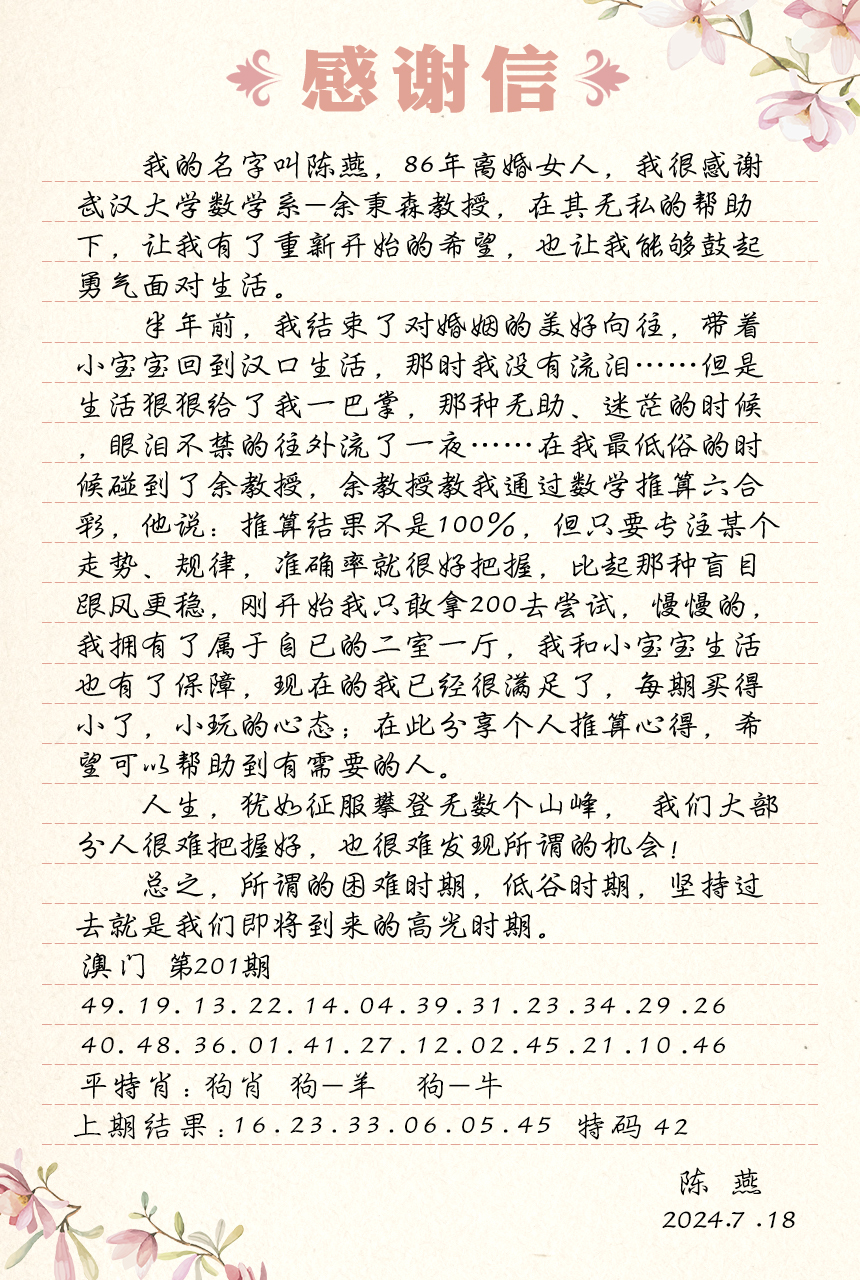 感谢信
我的名字叫陈燕，86年离婚女人，我很感谢
武汉大学数学系—余秉森教授，在其无私的帮助
下，让我有了重新开始的希望，也让我能够鼓起
勇气面对生活。
半年前，我结束了对婚姻的美好向往，带着
小宝宝回到汉口生活，那时我没有流泪……但是
生活狠狠给了我一巴掌，那种无助、迷茫的时候
，眼泪不禁的往外流了一夜……在我最低俗的时
候碰到了余教授，余教授教我通过数学推算六合
彩，他说：推算结果不是100%，但只要专注某个
走势、规律，准确率就很好把握，比起那种盲目
跟风更稳，刚开始我只敢拿200去尝试，慢慢的，
我拥有了属于自己的二室一厅，我和小宝宝生活
也有了保障，现在的我已经很满足了，每期买得
小了，小玩的心态；在此分享个人推算心得，希
望可以帮助到有需要的人。
人生，犹如征服攀登无数个山峰， 我们大部
分人很难把握好，也很难发现所谓的机会！
总之，所谓的困难时期，低谷时期，坚持过
去就是我们即将到来的高光时期。
澳门 第201期
49.19.13.22.14.04.39.31.23.34.29.26
40.48.36.01.41.27.12.02.45.21.10.46
平特肖：狗肖 狗—羊 狗—牛
上期结果：16.23.33.06.05.45 特码 42
陈 燕
2024.7.18